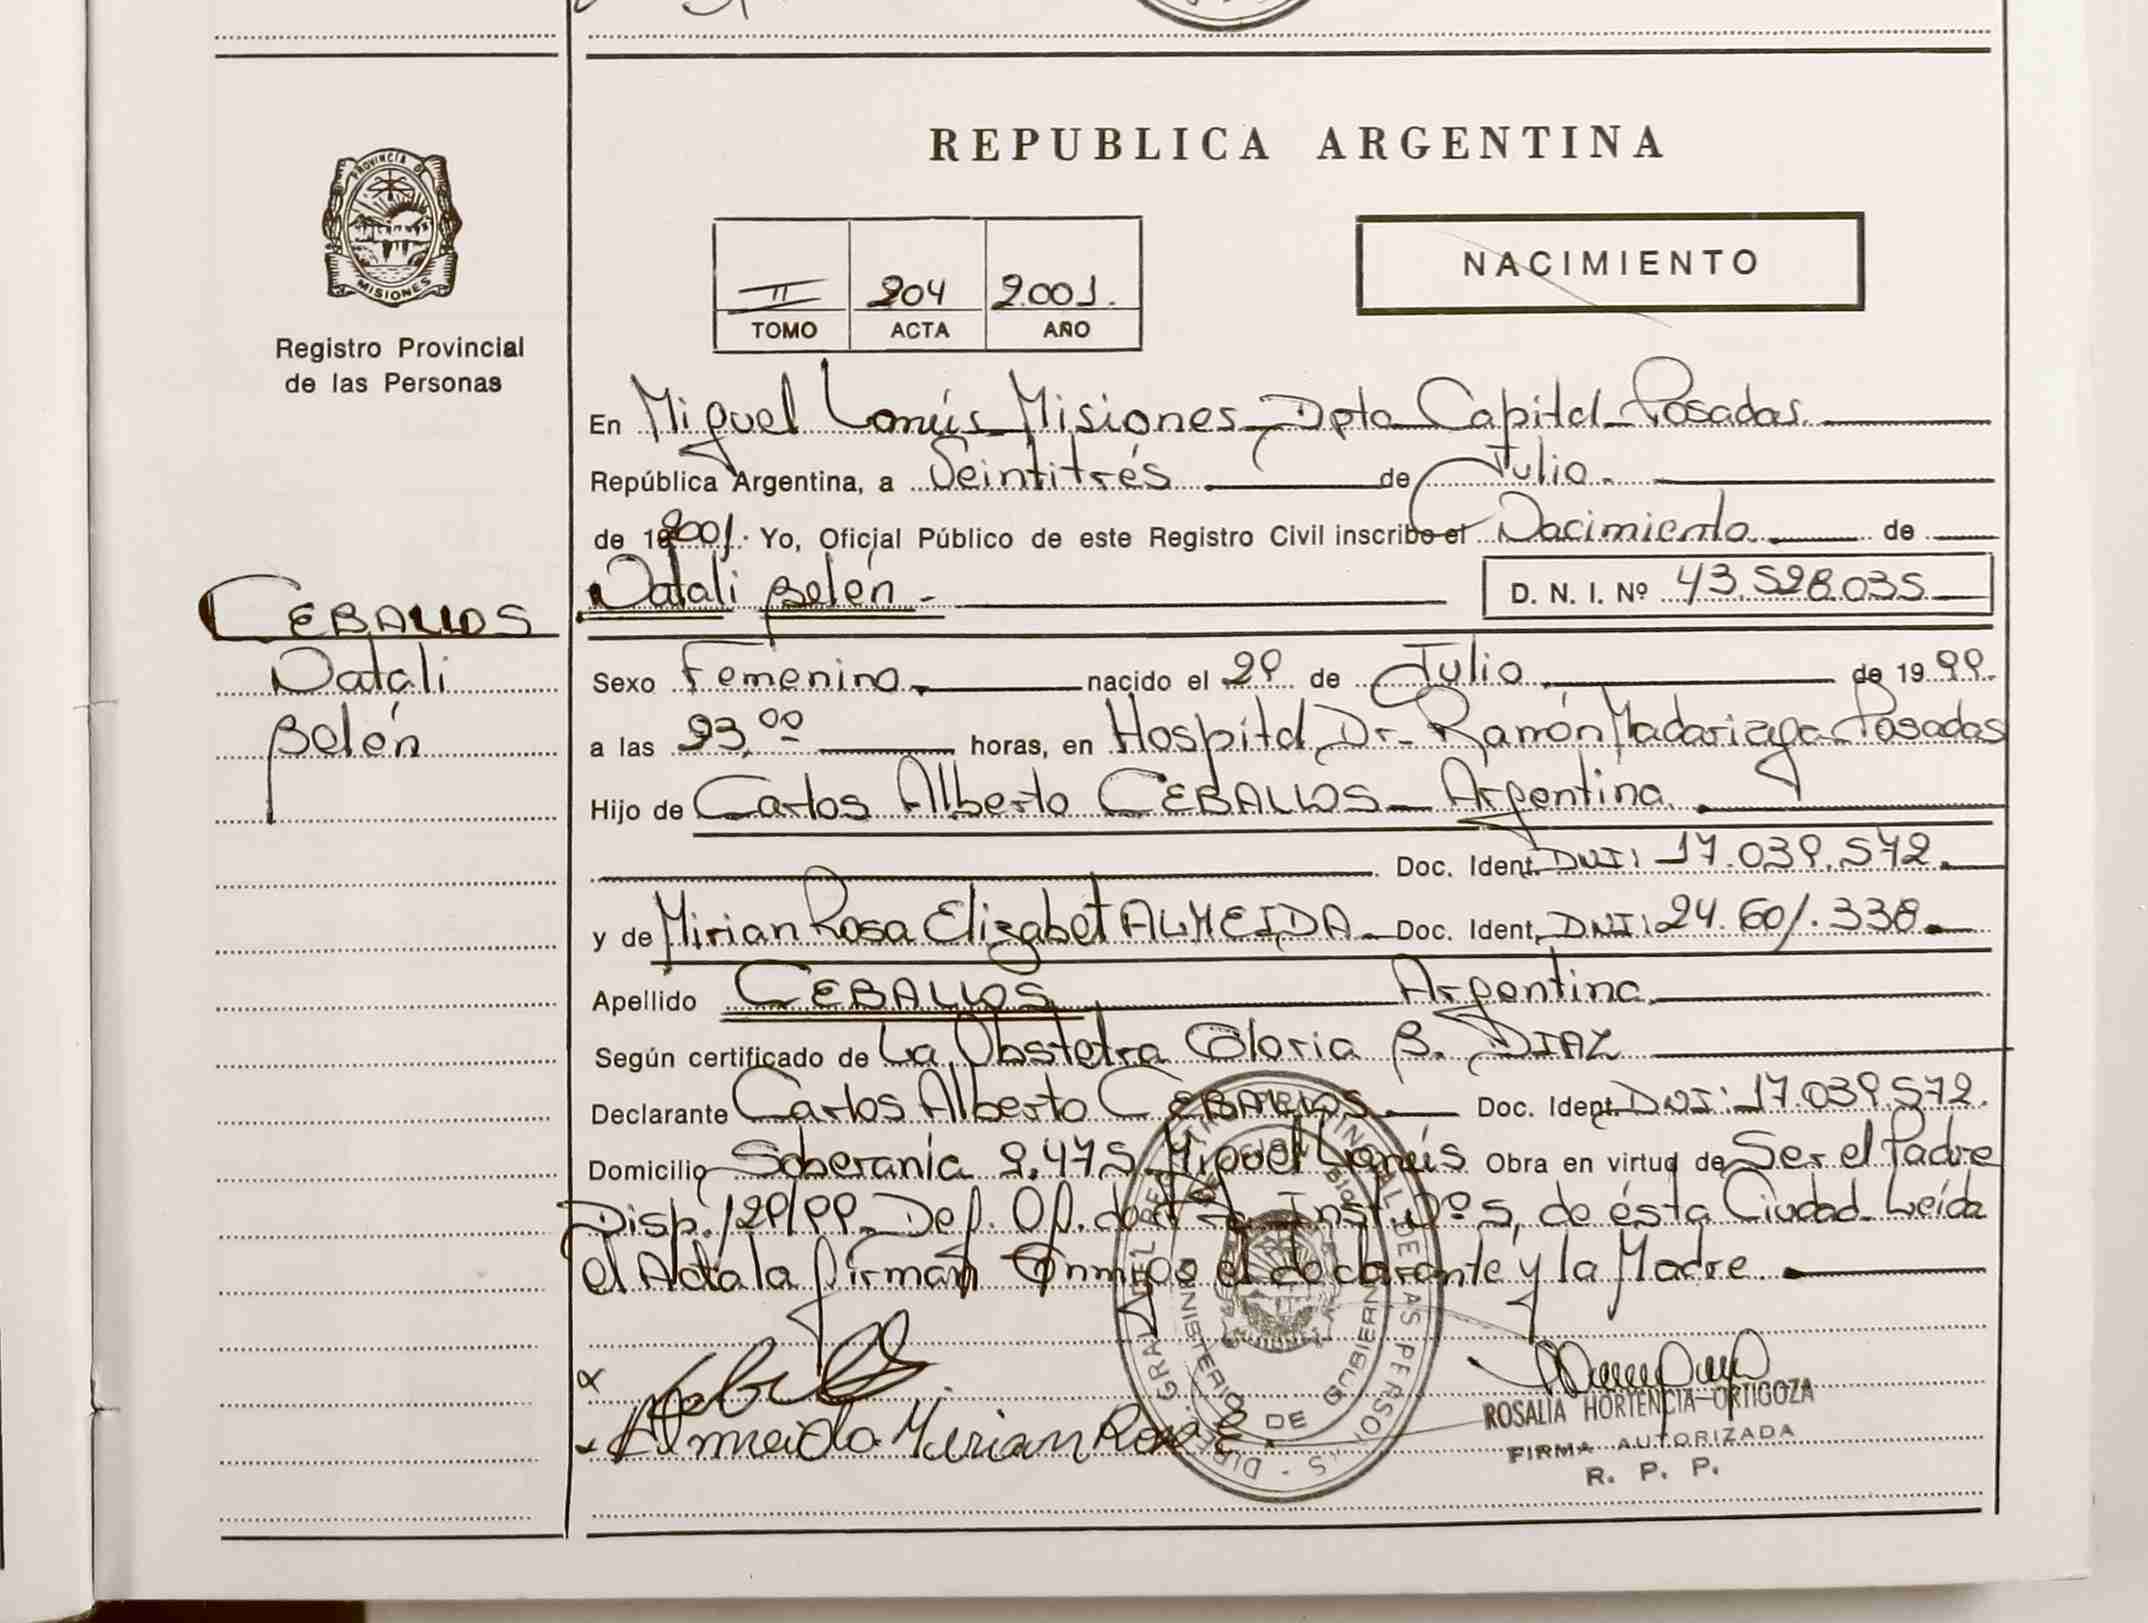 PROVINCIA DE
MISIONES
Registro Provincial
de las Personas
CEBALLOS
Natali
Belén
REPUBLICA ARGENTINA
II 204 2.001.
TOMO ACTA AÑO
NACIMIENTO
En Miguel Lanús Misiones Dpto Capital Posadas.
República Argentina, a Veintitrés de Julio.
de 2001. Yo, Oficial Público de este Registro Civil inscribo el Nacimiento de
Natali Belén - D. N. I. Nº 43.528.035
Sexo Femenino nacido el 29 de Julio de 1999.
a las 23,00 horas, en Hospital Dr. Ramón Madariaga Posadas
Hijo de Carlos Alberto CEBALLOS - Argentina
Doc. Ident. DNI: 17.039.572.
y de Mirian Rosa Elizabet ALMEIDA Doc. Ident. DNI: 24.601.338.
Apellido CEBALLOS Argentina
Según certificado de La Obstetra Gloria B. DIAZ
Declarante Carlos Alberto CEBALLOS Doc. Ident. DNI: 17.039.572.
Domicilio Soberanía 2.475 Miguel Lanús Obra en virtud de Ser el Padre
Disp. 129/99. Def. Of. de Inst. Nº 5, de ésta Ciudad Leída
el Acta la firman Conmigo el declarante y la Madre.
Almeida Mirian Rosa E.
MINISTERIO DE GOBIERNO
ROSALIA HORTENCIA ORTIGOZA
FIRMA AUTORIZADA
R. P. P.